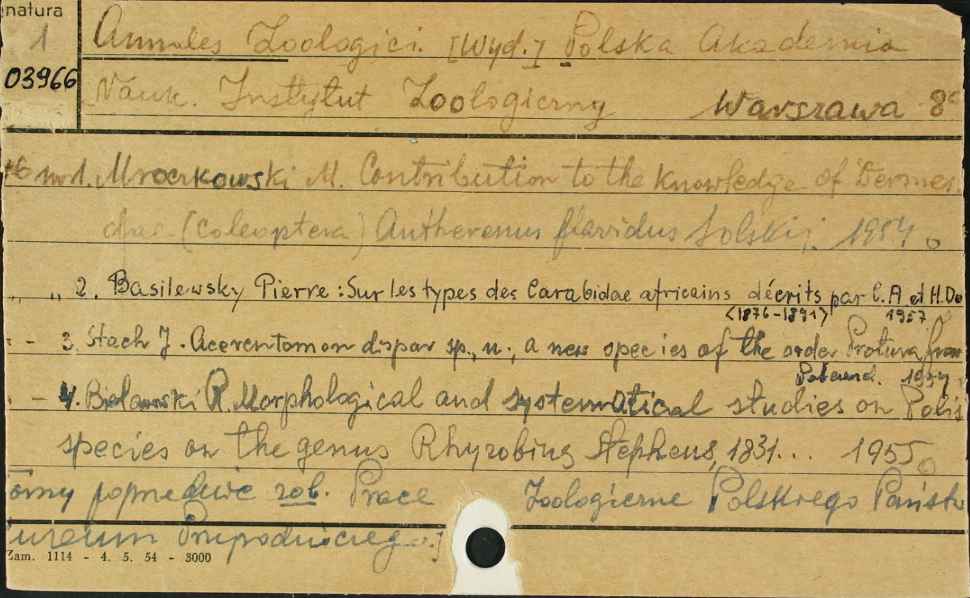 natura
1
03966
Annales Zoologici. [Wyd.] Polska Akademia
Nauk. Instytut Zoologiczny Warszawa 8°
nr 1. Mroczkowski M. Contribution to the knowledge of Dermes
dae (coleoptera) Anthrenus flavidus Solskij. 1954.
„ „ 2. Basilewsky Pierre: Sur les types des Carabidae africains décrits par C.A et H. De
<1876-1891> 1957
- 3. Stach J. Acerentomon dispar sp., n., a new species of the order Protura from
Poland. 1957
- 4. Bielawski R. Morphological and systematical studies on Polis
species on the genus Rhyzobius Stephens, 1831... 1955.
tomy poprzednie zob. Prace Zoologiczne Polskiego Państw
uzeum Przyrodniczeg..]
Zam. 1114 - 4. 5. 54 - 3000